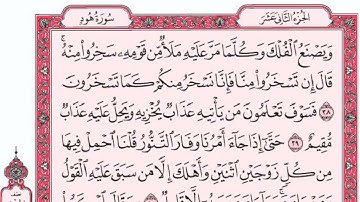 الجزء الثاني عشر
سورة هود
وَيَصْنَعُ الْفُلْكَ وَكُلَّمَا مَرَّ عَلَيْهِ مَلَأٌ مِّن قَوْمِهِ سَخِرُوا مِنْهُ
قَالَ إِن تَسْخَرُوا مِنَّا فَإِنَّا نَسْخَرُ مِنكُمْ كَمَا تَسْخَرُونَ
٣٨ فَسَوْفَ تَعْلَمُونَ مَن يَأْتِيهِ عَذَابٌ يُخْزِيهِ وَيَحِلُّ عَلَيْهِ عَذَابٌ
مُّقِيمٌ ٣٩ حَتَّىٰ إِذَا جَاءَ أَمْرُنَا وَفَارَ التَّنُّورُ قُلْنَا احْمِلْ فِيهَا
مِن كُلٍّ زَوْجَيْنِ اثْنَيْنِ وَأَهْلَكَ إِلَّا مَن سَبَقَ عَلَيْهِ الْقَوْلُ